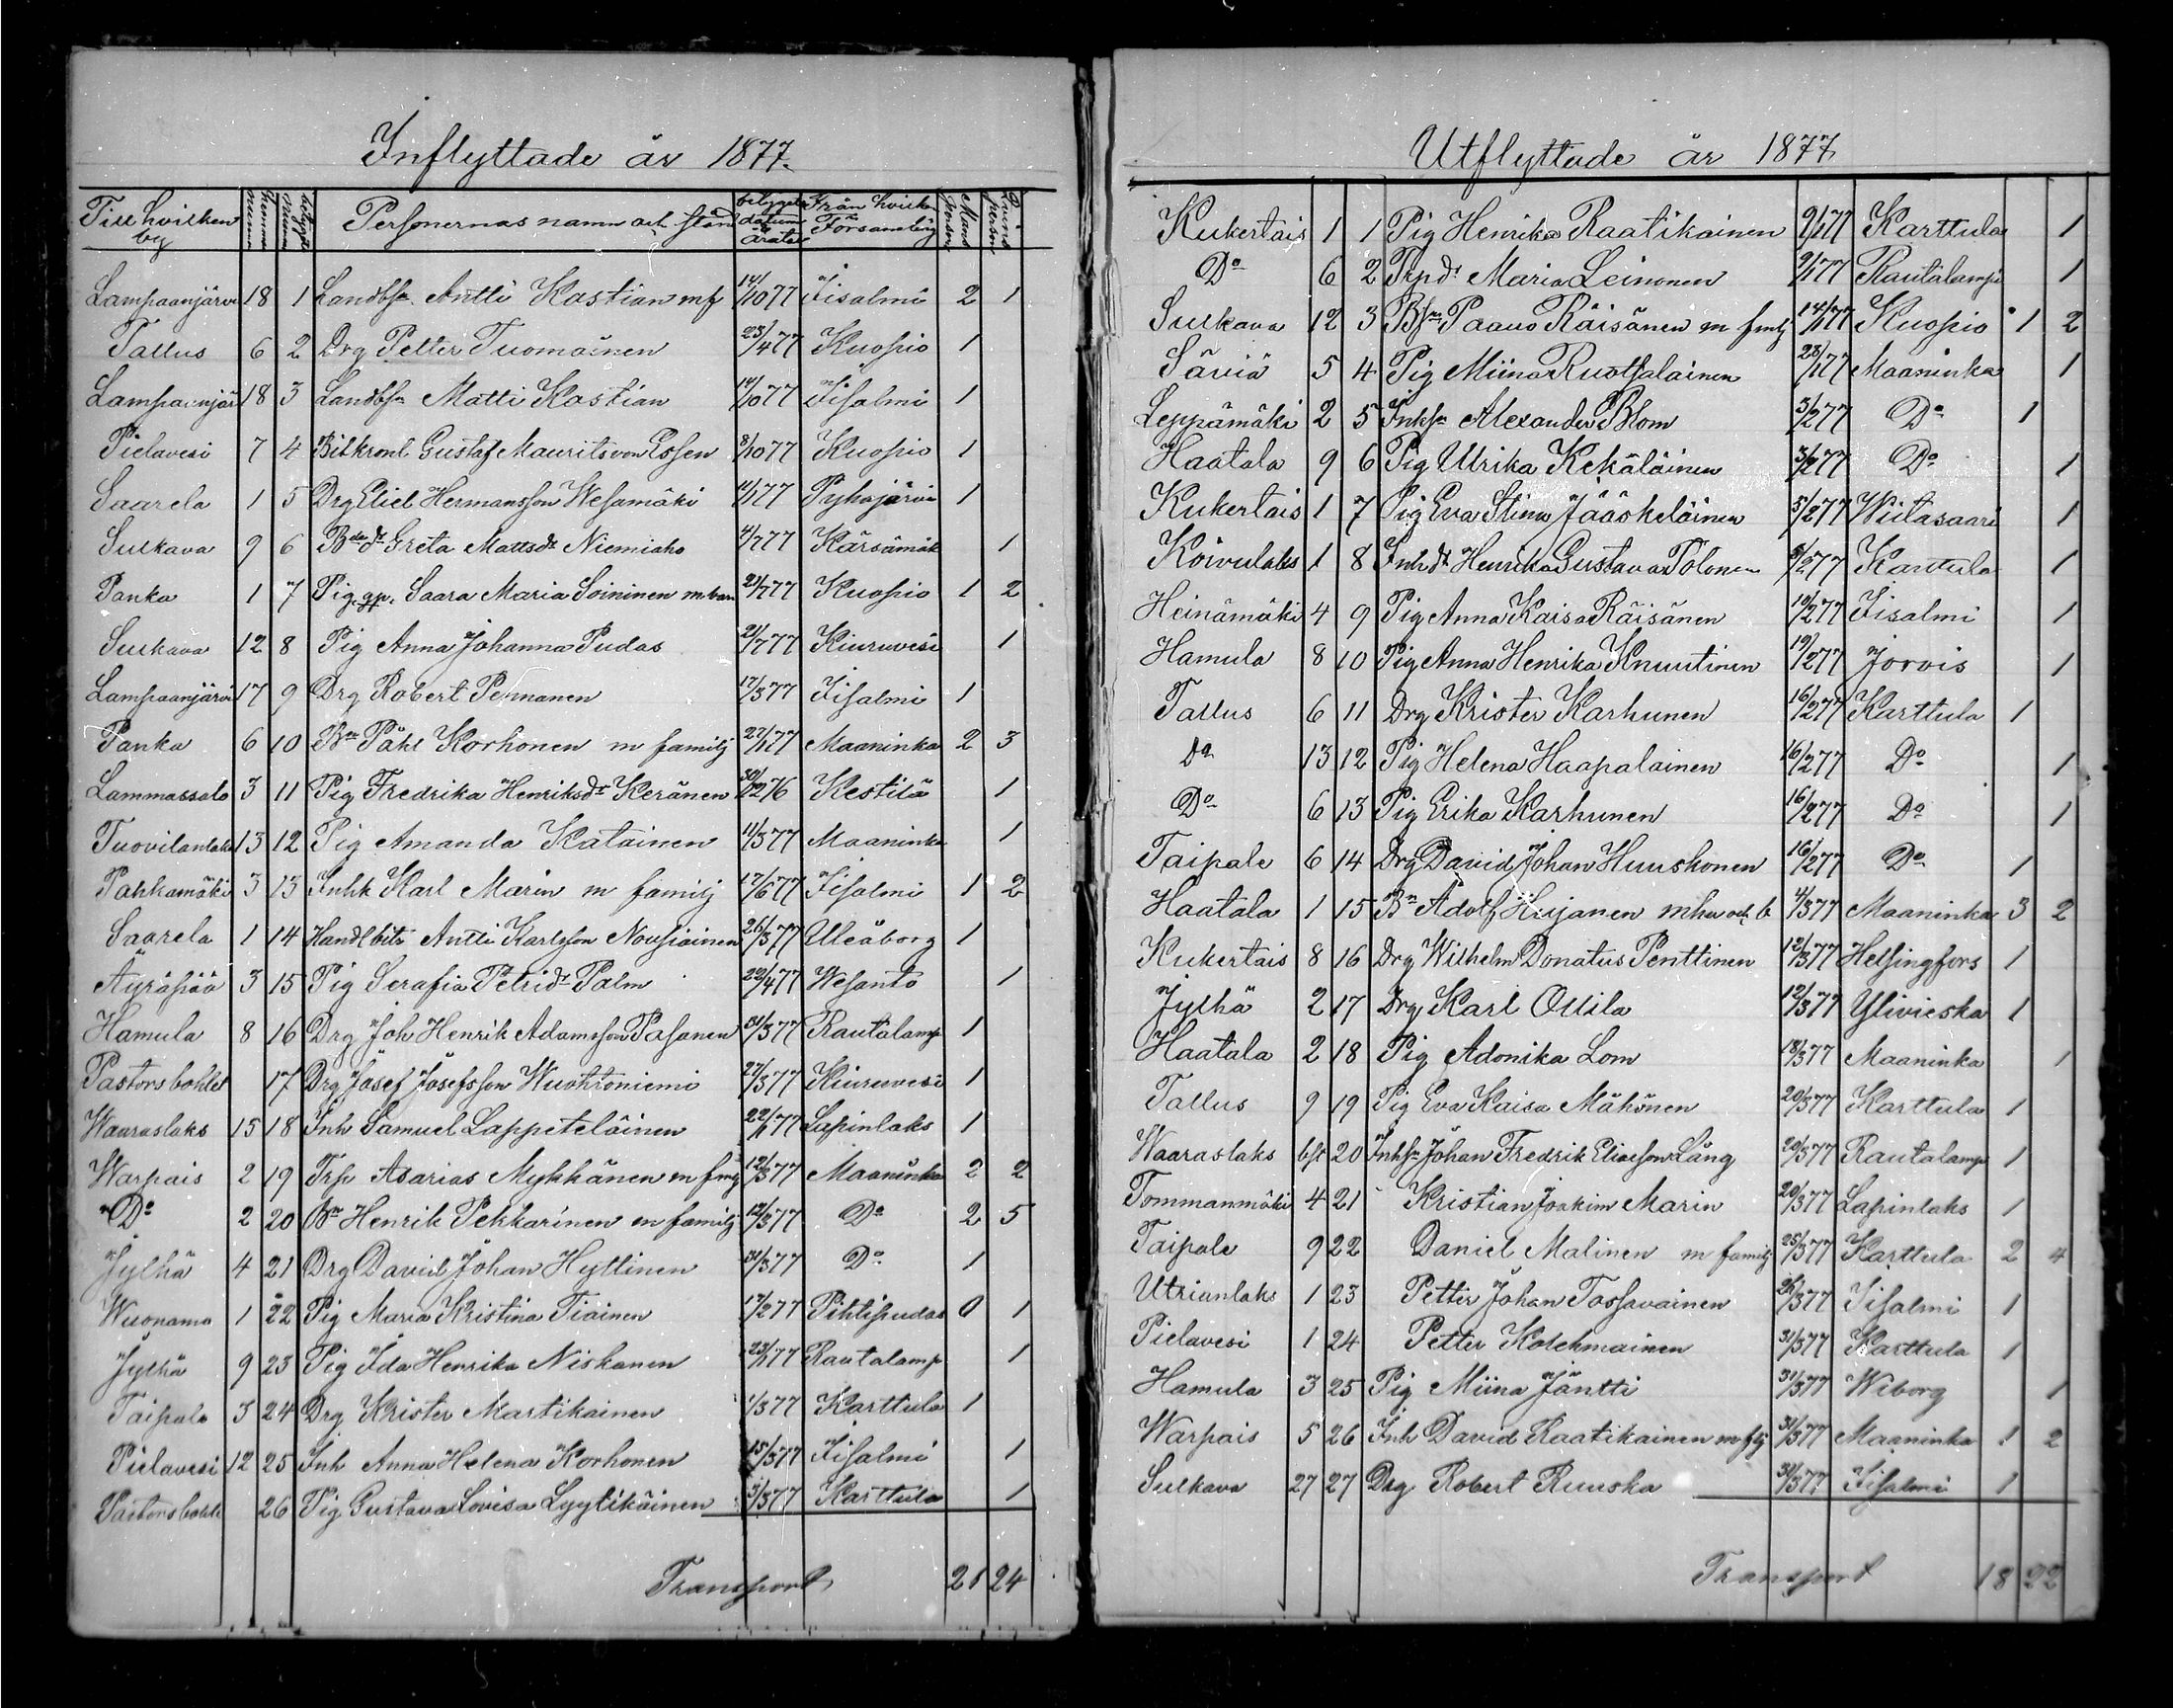 Inflyttade år 1877.
Till hvilken by Personernas namn och stånd betygets datum och årtal Från hvilken Församling Mans person Quins person
Lampaanjärvi 18 1 Landbsn. Antti Kastian m f 14/10 77 Iisalmi 2 1
Tallus 6 2 Drg Petter Tuomainen 23/4 77 Kuopio 1
Lampaanjär 18 3 Landbsn Matti Kastian 14/10 77 Iisalmi 1
Pielavesi 7 4 Gustaf Maurits von Essen 8/10 77 Kuopio 1
Saarela 1 5 Drg Eliel Hermansson Wesamäki 11/1 77 Pyhäjärvi 1
Sulkava 9 6 Greta Mattsdr Niemiaho 4/7 77 Kärsämäk 1
Panka 1 7 Pig. gp. Saara Maria Soininen m barn 21/7 77 Kuopio 1 2
Sulkava 12 8 Pig Anna Johanna Pudas 21/7 77 Kiuruvesi 1
Lampaanjärvi 17 9 Drg Robert Pennanen 17/3 77 Iisalmi 1
Panka 6 10 Bn Påhl Korhonen m familj 27/1 77 Maaninka 2 3
Lammassalo 3 11 Pig Fredrika Henriksdr Keränen 30/12 76 Kestilä 1
Tuovilanlaks 13 12 Pig Amanda Katainen 11/3 77 Maaninka 1
Pahkamäki 3 13 Inhk Karl Marin m familj 17/6 77 Iisalmi 1 2
Saarela 1 14 Handl bitr Antti Karlsson Nousiainen 26/3 77 Uleåborg 1
Äyräpää 3 15 Pig Serafia Petridr Palm 22/4 77 Wesanto 1
Hamula 8 16 Drg Joh Henrik Adamsson Pasanen 31/3 77 Rautalamp 1
Pastorsbohlet 17 Drg Josef Josefsson Wuohtoniemi 27/3 77 Kiuruvesi 1
Waaraslaks 15 18 Inh Samuel Lappeteläinen 22/1 77 Lapinlaks 1
Warpais 2 19 Trp Asarias Mykkänen m fmj 12/3 77 Maaninka 2 2
Do 2 20 Bn Henrik Pekkarinen m familj 12/3 77 Do 2 5
Jylhä 4 21 Drg David Johan Hyttinen 31/3 77 Do 1
Wuonamo 1 22 Pig Maria Kristina Tiainen 17/2 77 Pihtipudas 0 1
Jylhä 9 23 Pig Ida Henrika Niskanen 23/1 77 Rautalamp 1
Taipale 3 24 Drg Krister Martikainen 1/3 77 Karttula 1
Pielavesi 12 25 Inh Anna Helena Korhonen 15/3 77 Iisalmi 1
Pastorsbohle 26 Pig Gustava Lovisa Lyytikäinen 3/3 77 Karttula 1
Transport 21 24
Utflyttade år 1877
Kukertais 1 1 Pig Henrika Raatikainen 9/1 77 Karttula 1
Do 6 2 Trpdr Maria Leinonen 9/1 77 Rautalampi 1
Sulkava 12 3 Bsn Paavo Räisänen m fmlj 14/1 77 Kuopio 1 2
Säviä 5 4 Pig Miina Ruotsalainen 23/1 77 Maaninka 1
Leppämäki 2 5 Inhsn Alexander Blom 3/2 77 Do 1
Haatala 9 6 Pig Ulrika Kekäläinen 3/2 77 Do 1
Kukertais 1 7 Pig Eva Stina Jääskeläinen 3/2 77 Wiitasaari 1
Koivulaks 1 8 Inhdr Henrika Gustava Tolonen 8/2 77 Karttula 1
Heinämäki 4 9 Pig Anna Kaisa Räisänen 10/2 77 Iisalmi 1
Hamula 8 10 Pig Anna Henrika Knuutinen 19/2 77 Jorvis 1
Tallus 6 11 Drg Krister Karhunen 16/2 77 Karttula 1
Do 13 12 Pig Helena Haapalainen 16/2 77 Do 1
Do 6 13 Pig Erika Karhunen 16/2 77 Do 1
Taipale 6 14 Drg David Johan Huuskonen 16/2 77 Do 1
Haatala 1 15 Bn Adolf Hujanen m hu och b 4/3 77 Maaninka 3 2
Kukertais 8 16 Drg Wilhelm Donatus Penttinen 12/3 77 Helsingfors 1
Jylhä 2 17 Drg Karl Ollila 12/3 77 Ylivieska 1
Haatala 2 18 Pig Adonika Lom 18/3 77 Maaninka 1
Tallus 9 19 Pig Eva Kaisa Mähönen 20/3 77 Karttula 1
Waaraslaks bst 20 Inhsn Johan Fredrik Eliasson Lång 20/3 77 Rautalamp 1
Tommanmäki 4 21 Kristian Joakim Marin 20/3 77 Lapinlaks 1
Taipale 9 22 Daniel Malinen m familj 25/3 77 Karttula 2 4
Utrianlaks 1 23 Petter Johan Tossavainen 26/3 77 Iisalmi 1
Pielavesi 1 24 Petter Kolehmainen 31/3 77 Karttula 1
Hamula 3 25 Pig Miina Jäntti 31/3 77 Wiborg 1
Warpais 5 26 Inh David Raatikainen m flj 31/3 77 Maaninka 1 2
Sulkava 27 27 Drg Robert Ruuska 31/3 77 Iisalmi 1
Transport 18 22